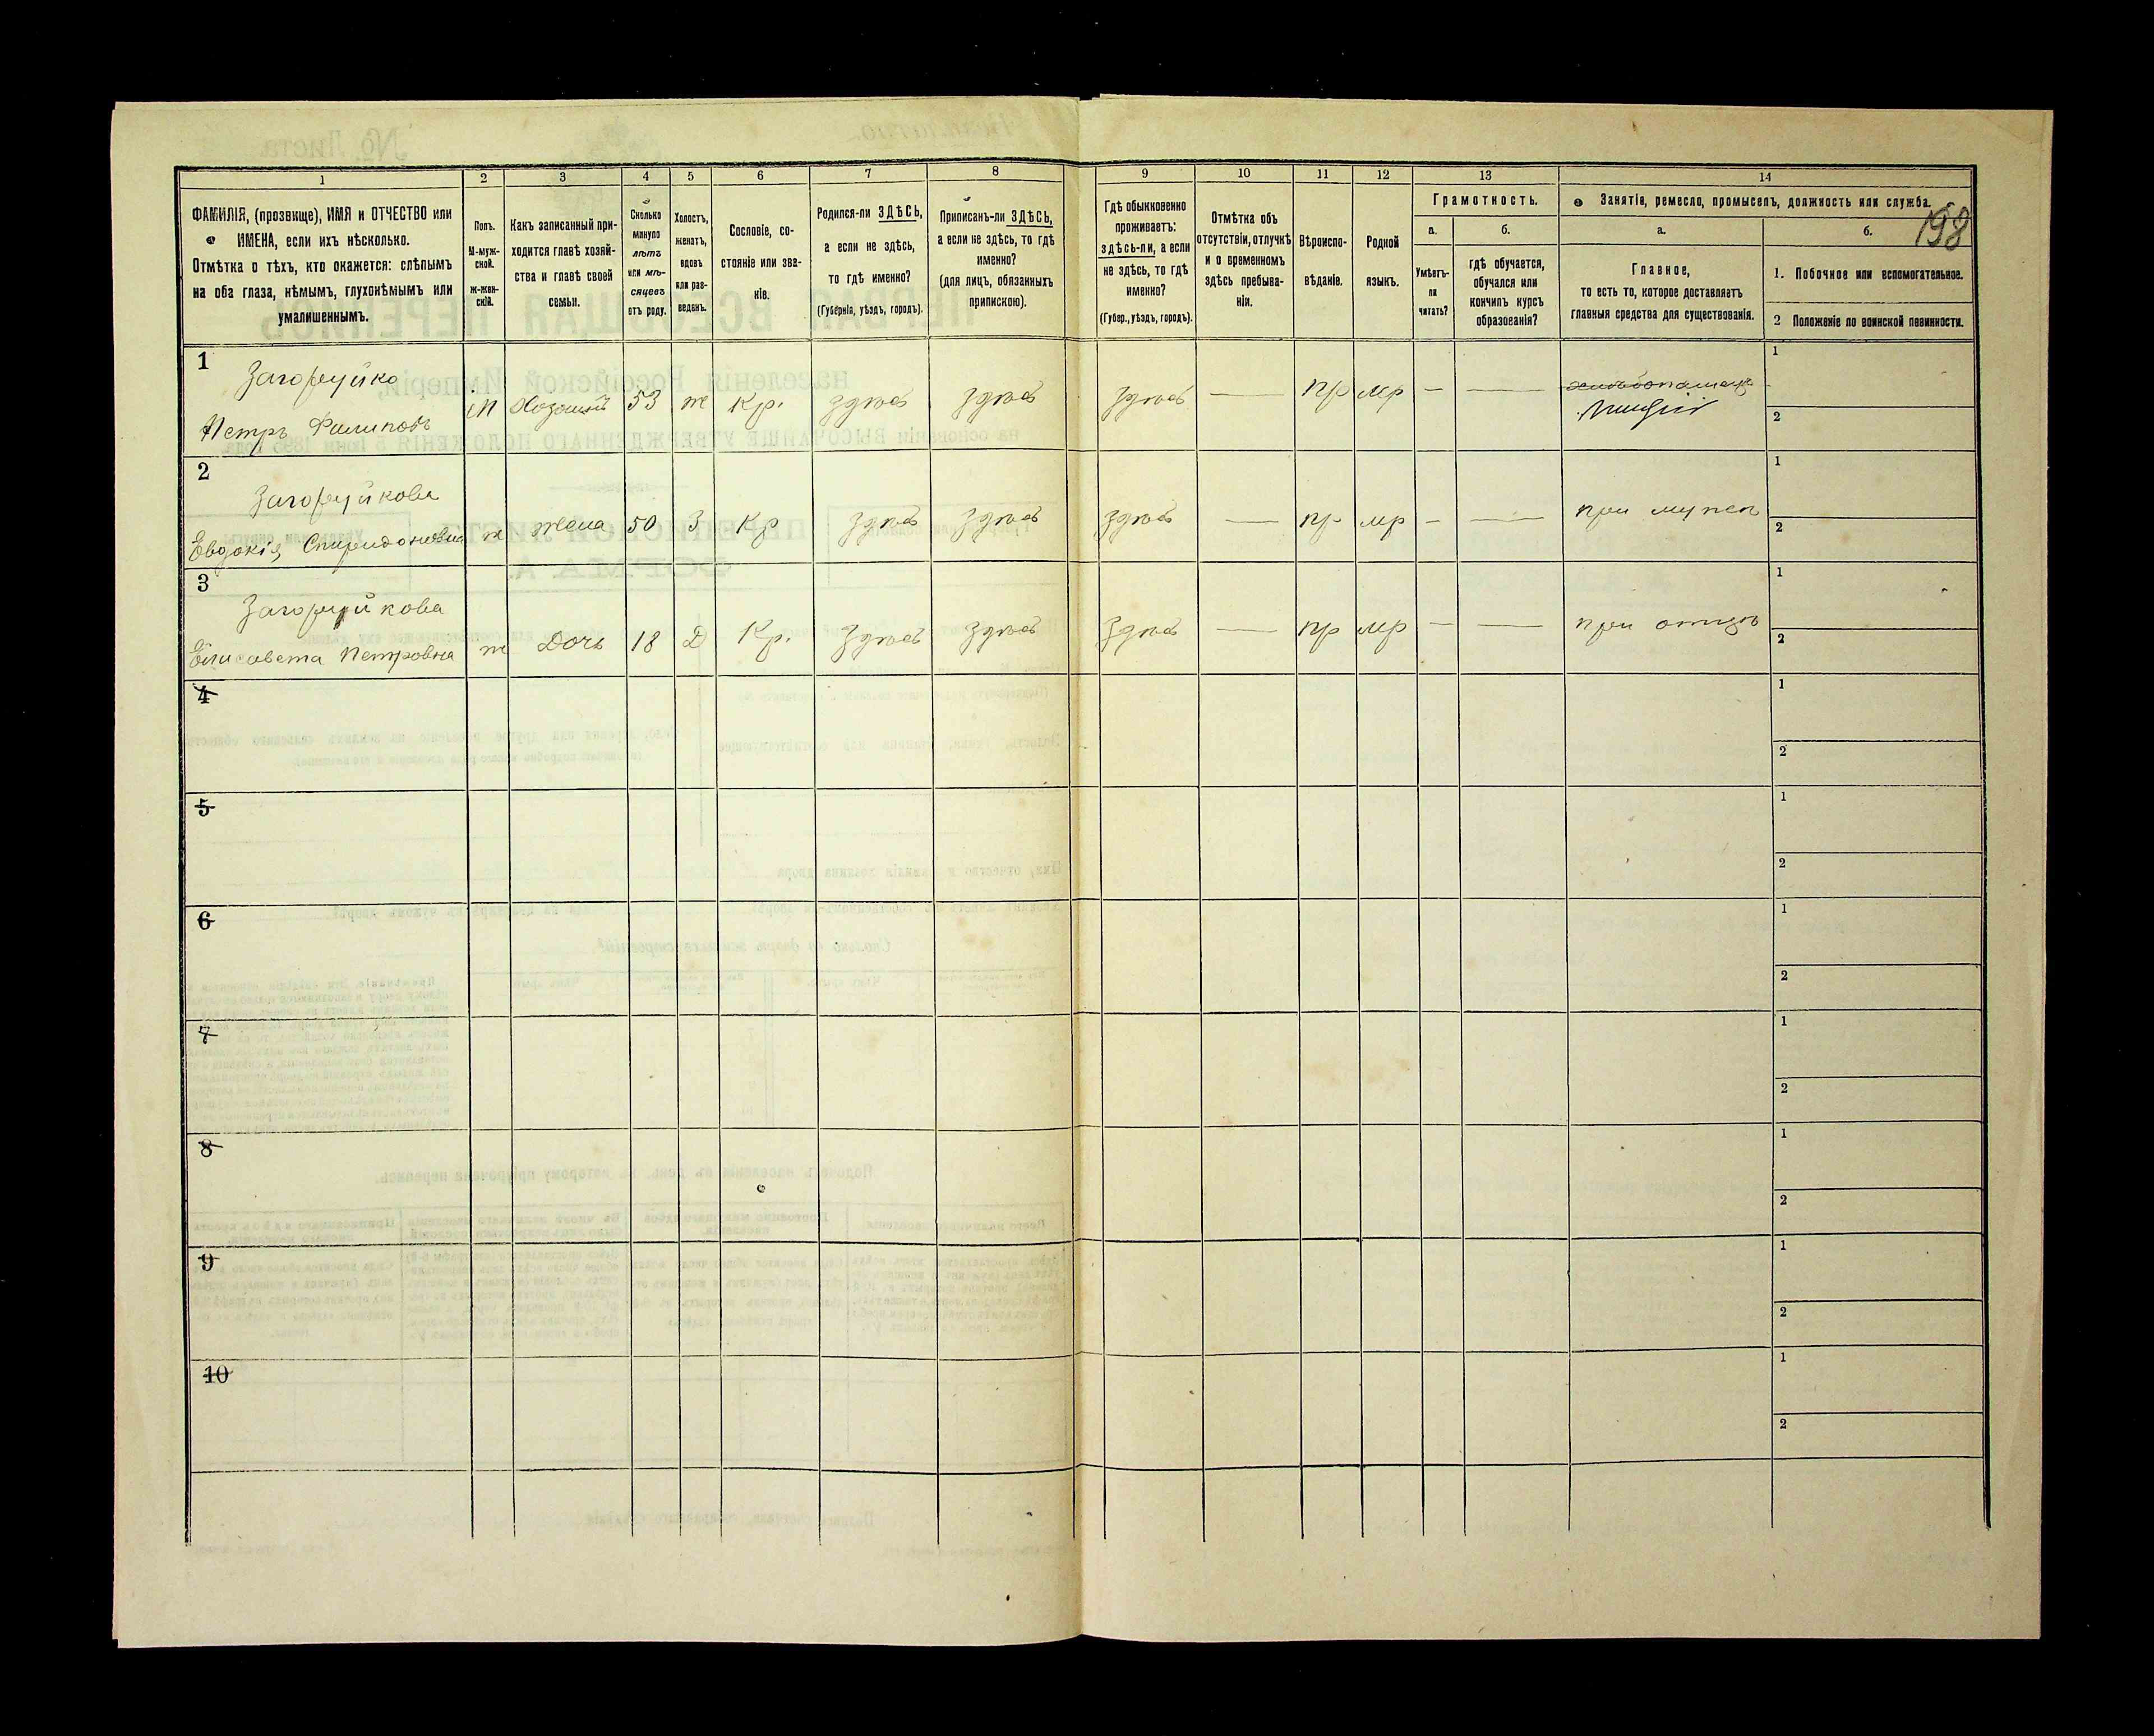 198
1 2 3 4 5 6 7 8 9 10 11 12 13 14
ФАМИЛІЯ, (прозвище), ИМЯ и ОТЧЕСТВО или
ИМЕНА, если ихъ нѣсколько.
Отмѣтка о тѣхъ, кто окажется: слѣпымъ
на оба глаза, нѣмымъ, глухонѣмымъ или
умалишеннымъ.
Полъ.
М-муж-
ской.
ж-жен-
скій.
Какъ записанный при-
ходится главѣ хозяй-
ства и главѣ своей
семьи.
Сколько
минуло
лѣтъ
или мѣ-
сяцевъ
отъ роду.
Холостъ,
женатъ,
вдовъ
или раз-
веденъ.
Сословіе, со-
стояніе или зва-
ніе.
Родился-ли ЗДѢСЬ,
а если не здѣсь,
то гдѣ именно?
(Губернія, уѣздъ, городъ).
Приписанъ-ли ЗДѢСЬ,
а если не здѣсь, то гдѣ
именно?
(для лицъ, обязанныхъ
припискою).
Гдѣ обыкновенно
проживаетъ:
здѣсь-ли, а если
не здѣсь, то гдѣ
именно?
(Губер., уѣздъ, городъ).
Отмѣтка объ
отсутствіи, отлучкѣ
и о временномъ
здѣсь пребыва-
ніи.
Вѣроиспо-
вѣданіе.
Родной
языкъ.
Грамотность.
а.
Умѣетъ-
ли
читать?
б.
гдѣ обучается,
обучался или
кончилъ курсъ
образованія?
Занятіе, ремесло, промыселъ, должность или служба.
а.
Главное,
то есть то, которое доставляетъ
главныя средства для существованія.
б.
1. Побочное или вспомогательное.
2 Положеніе по воинской повинности.
1
Загоруйко
Петръ Филиповъ
М Хозяинъ 53 ж Кр. здѣсь здѣсь здѣсь — пр мр — — хлѣбопашецъ
Нищій
1
2
2
Загоруйкова
Евдокія Спиридоновна
ж жена 50 З Кр здѣсь здѣсь здѣсь — пр мр — — при мужѣ
1
2
3
Загоруйкова
Елисавета Петровна
ж Дочь 18 Д Кр. здѣсь здѣсь здѣсь — пр мр — — при отцѣ
1
2
4
1
2
5
1
2
6
1
2
7
1
2
8
1
2
9
1
2
10
1
2